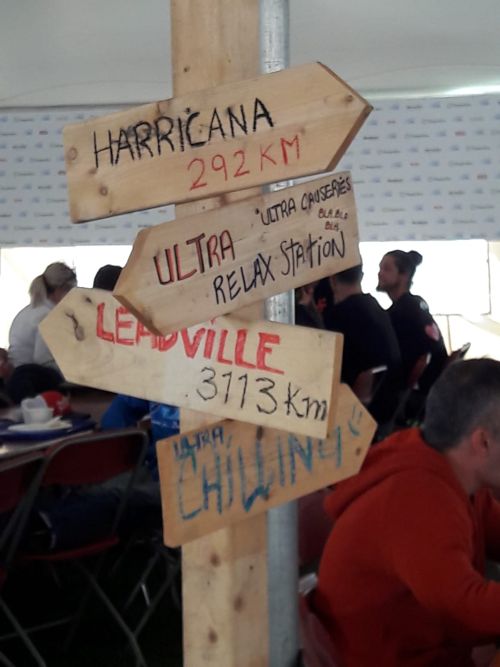 HARRICANA
292 KM
"ULTRA CAUSERIES"
BLA BLA
BLA
ULTRA
RELAX STATION
LEADVILLE
3113 Km
ULTRA
CHILLING